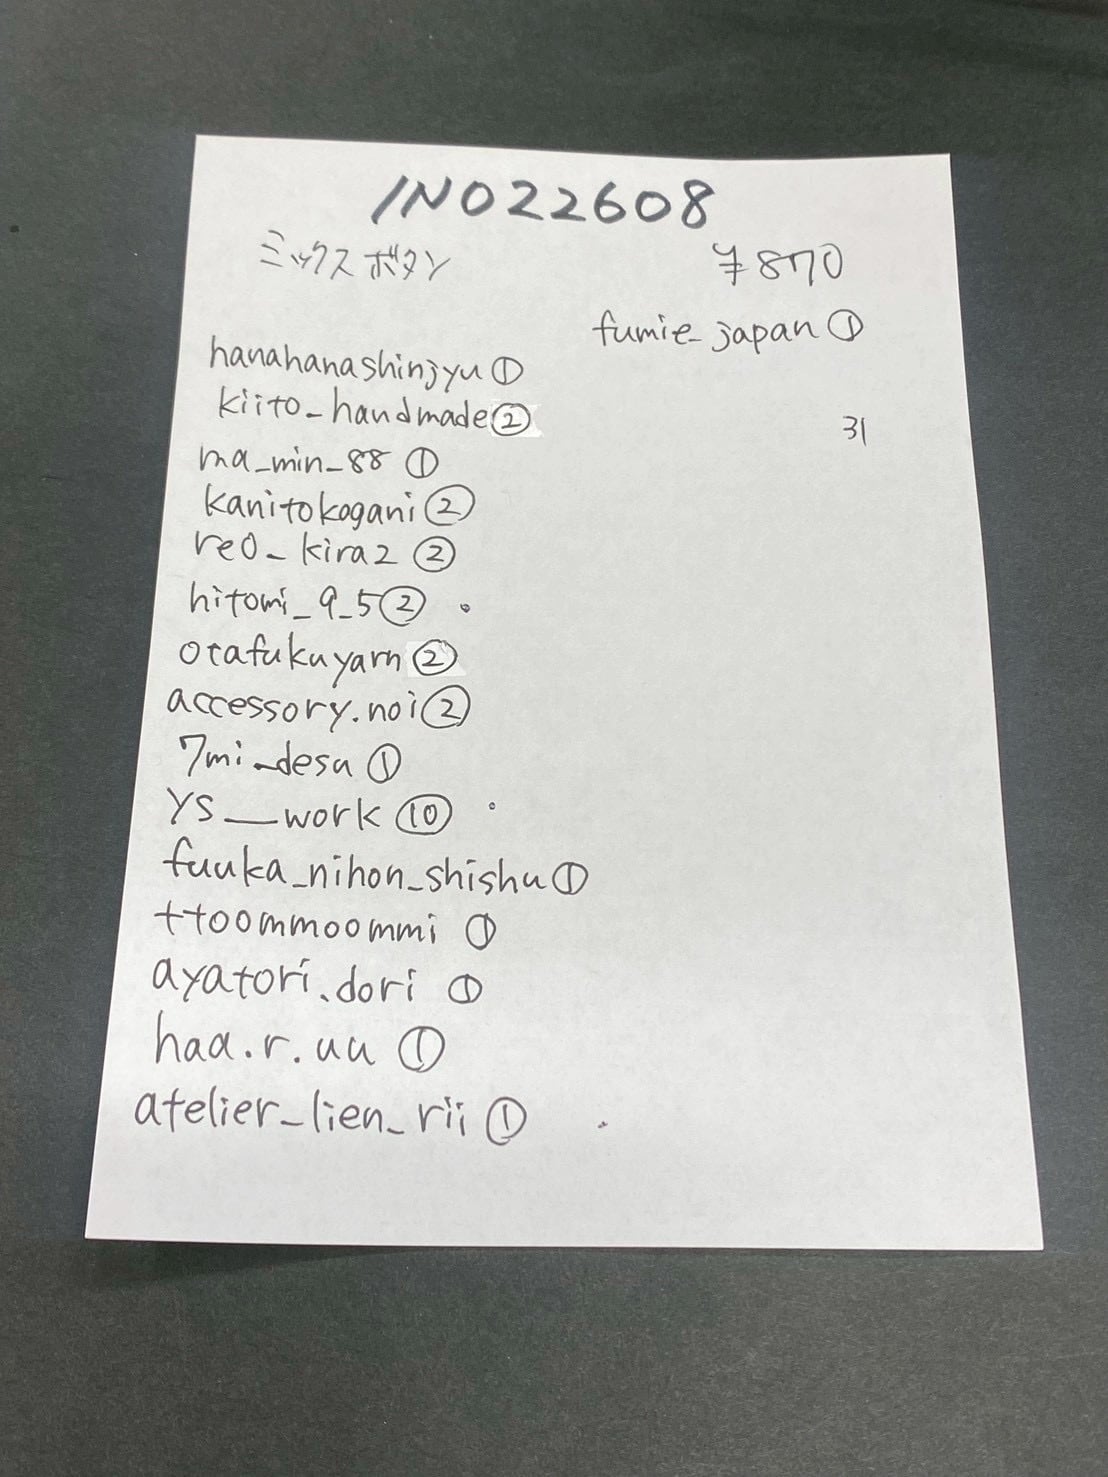 INO22608
ミックスボタン ¥870
hanahanashinjyu①
kiito_handmade②
ma_min_88 ①
kanitokogani②
reo_kira2 ②
hitomi_9_5②
otafukuyarn②
accessory.noi②
7mi_desu ①
YS__work ⑩
fuuka_nihon_shishu①
ttoommoommi ①
ayatori.dori ①
haa.r.uu ①
atelier_lien_rii ①
fumie_japan①
31